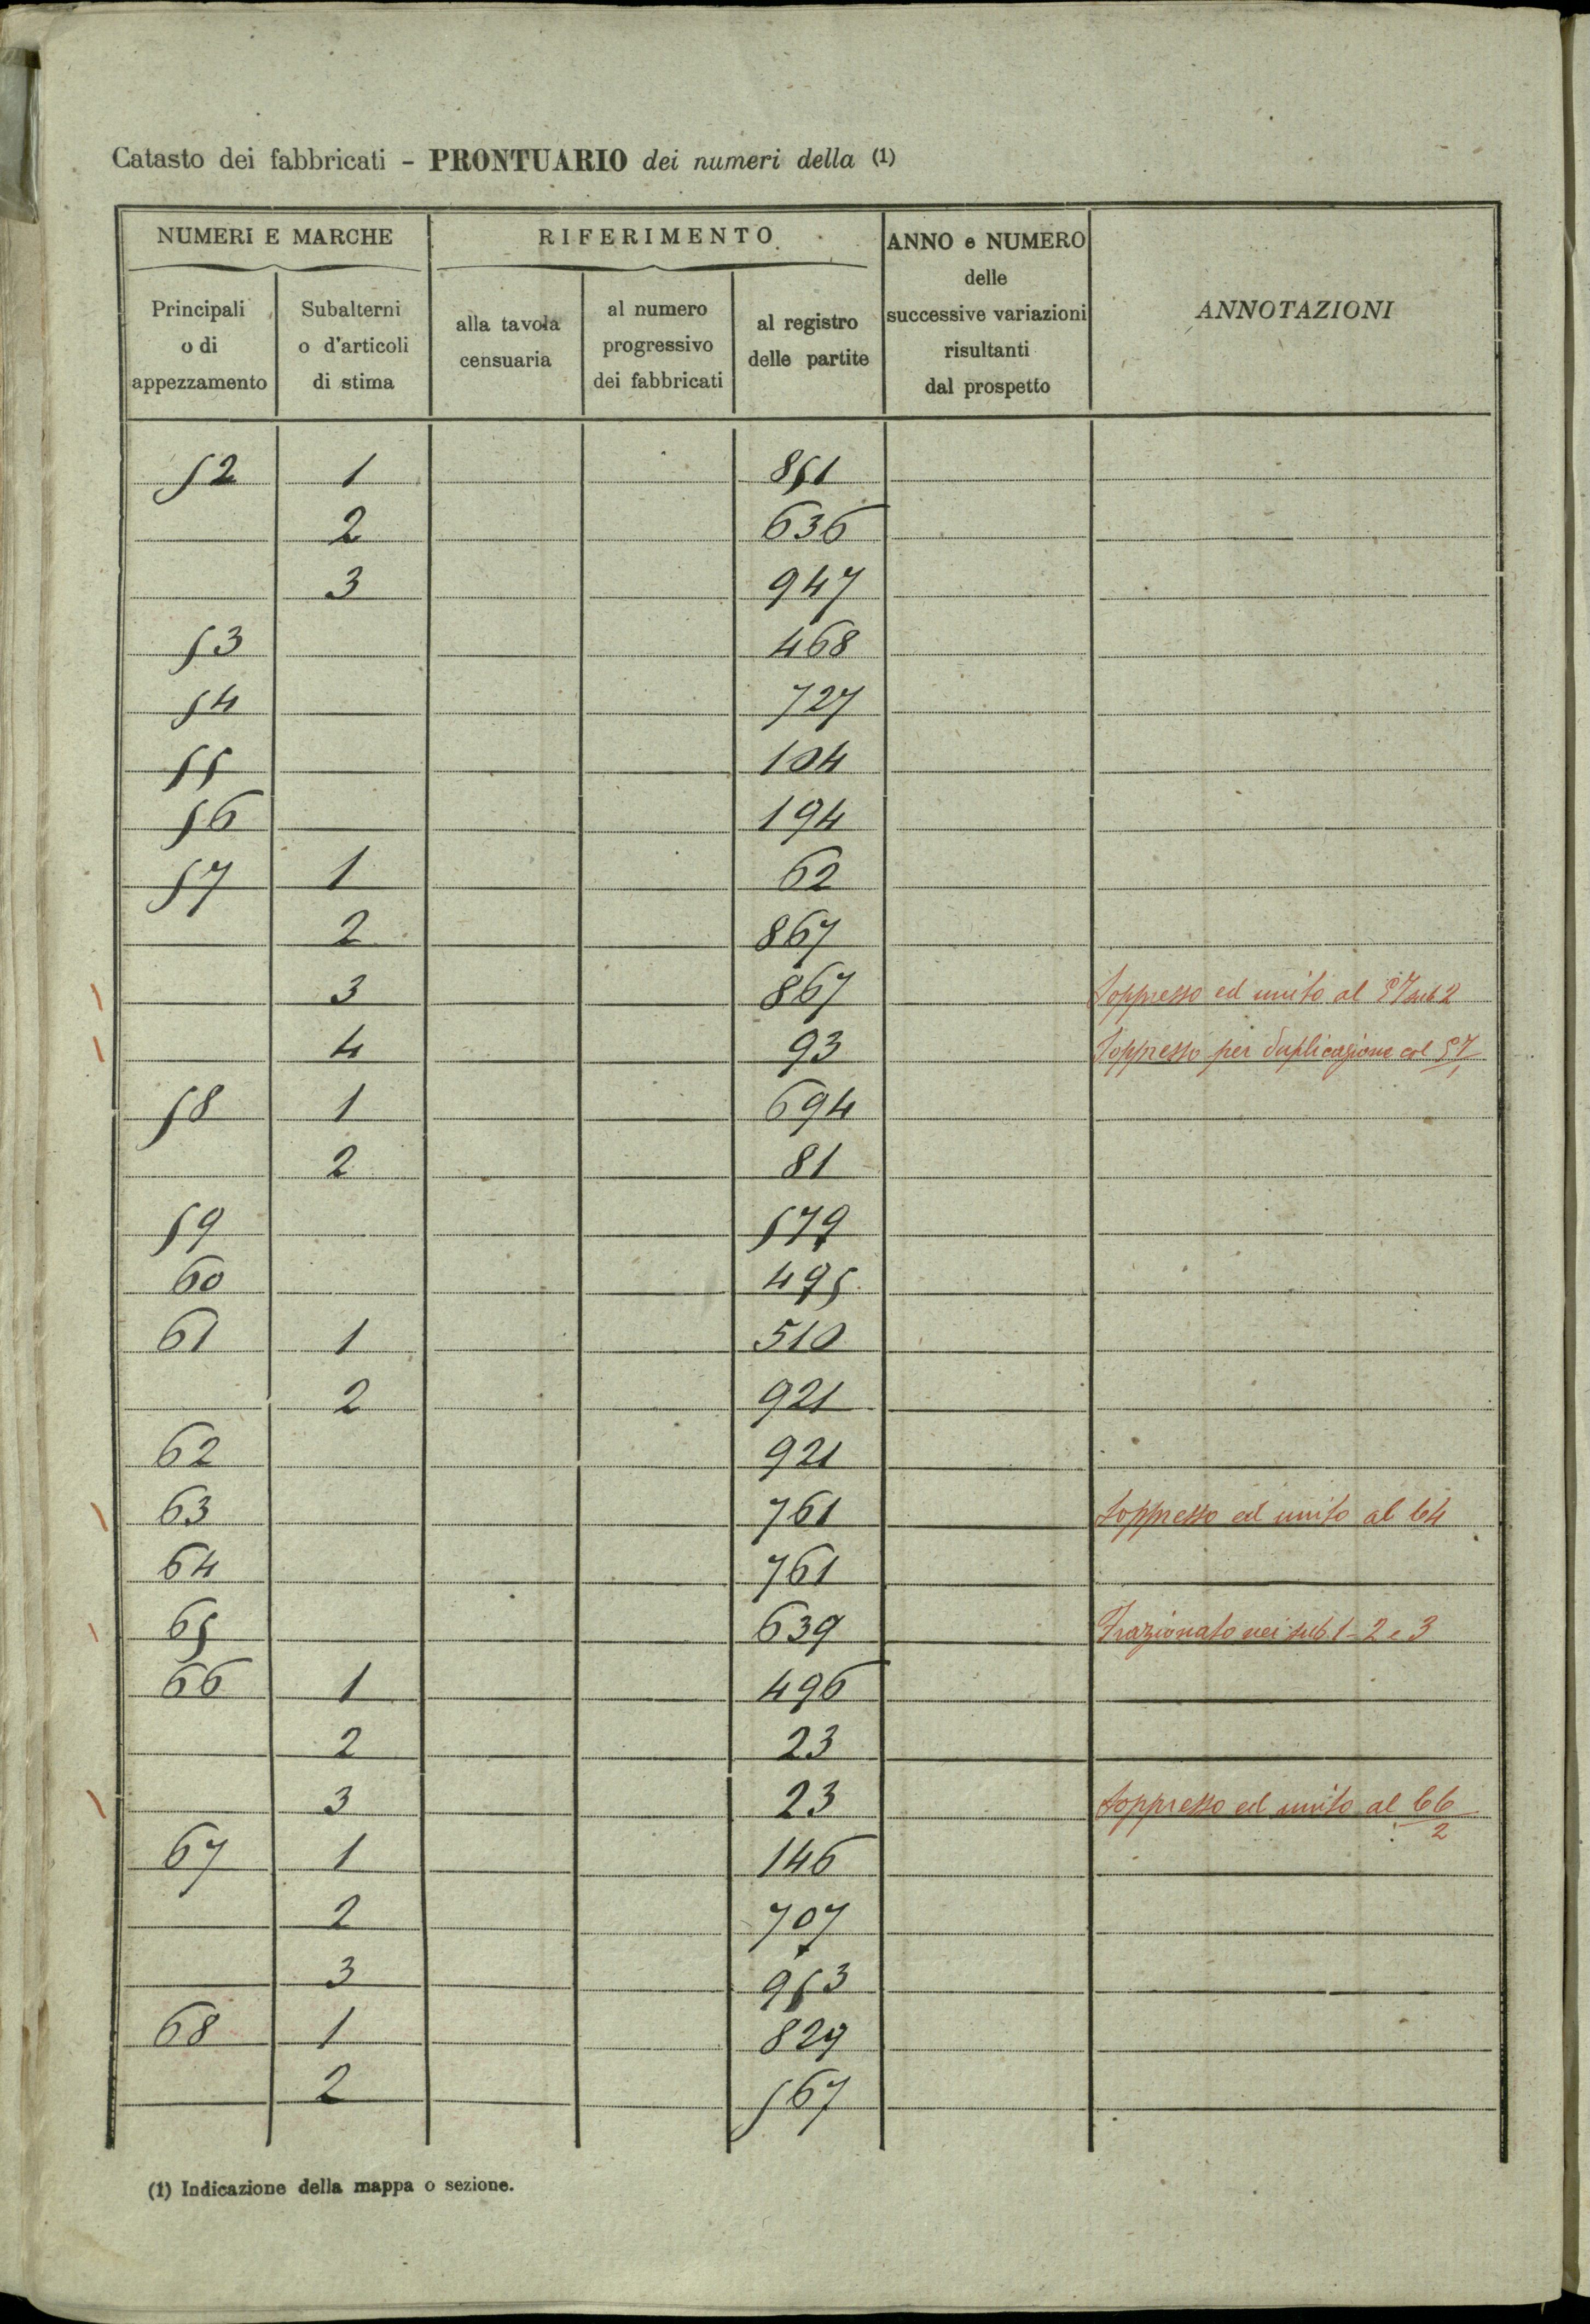 Catasto dei fabbricati - PRONTUARIO dei numeri della (1)
NUMERI E MARCHE
RIFERIMENTO
ANNO e NUMERO
delle
successive variazioni
risultanti
dal prospetto
ANNOTAZIONI
Principali
o di
appezzamento
Subalterni
o d'articoli
di stima
alla tavola
censuaria
al numero
progressivo
dei fabbricati
al registro
delle partite
52 1 851
2 636
3 947
53 468
54 727
55 104
56 194
57 1 62
2 867
3 867 Soppresso ed unito al 57 sub 2
4 93 Soppresso per duplicazione col 57/1
58 1 694
2 81
59 579
60 495
61 1 510
2 921
62 921
63 761 Soppresso ed unito al 64
64 761
65 639 Frazionato nei sub 1-2 e 3
66 1 496
2 23
3 23 Soppresso ed unito al 66/2
67 1 146
2 707
3 953
68 1 829
2 567
(1) Indicazione della mappa o sezione.